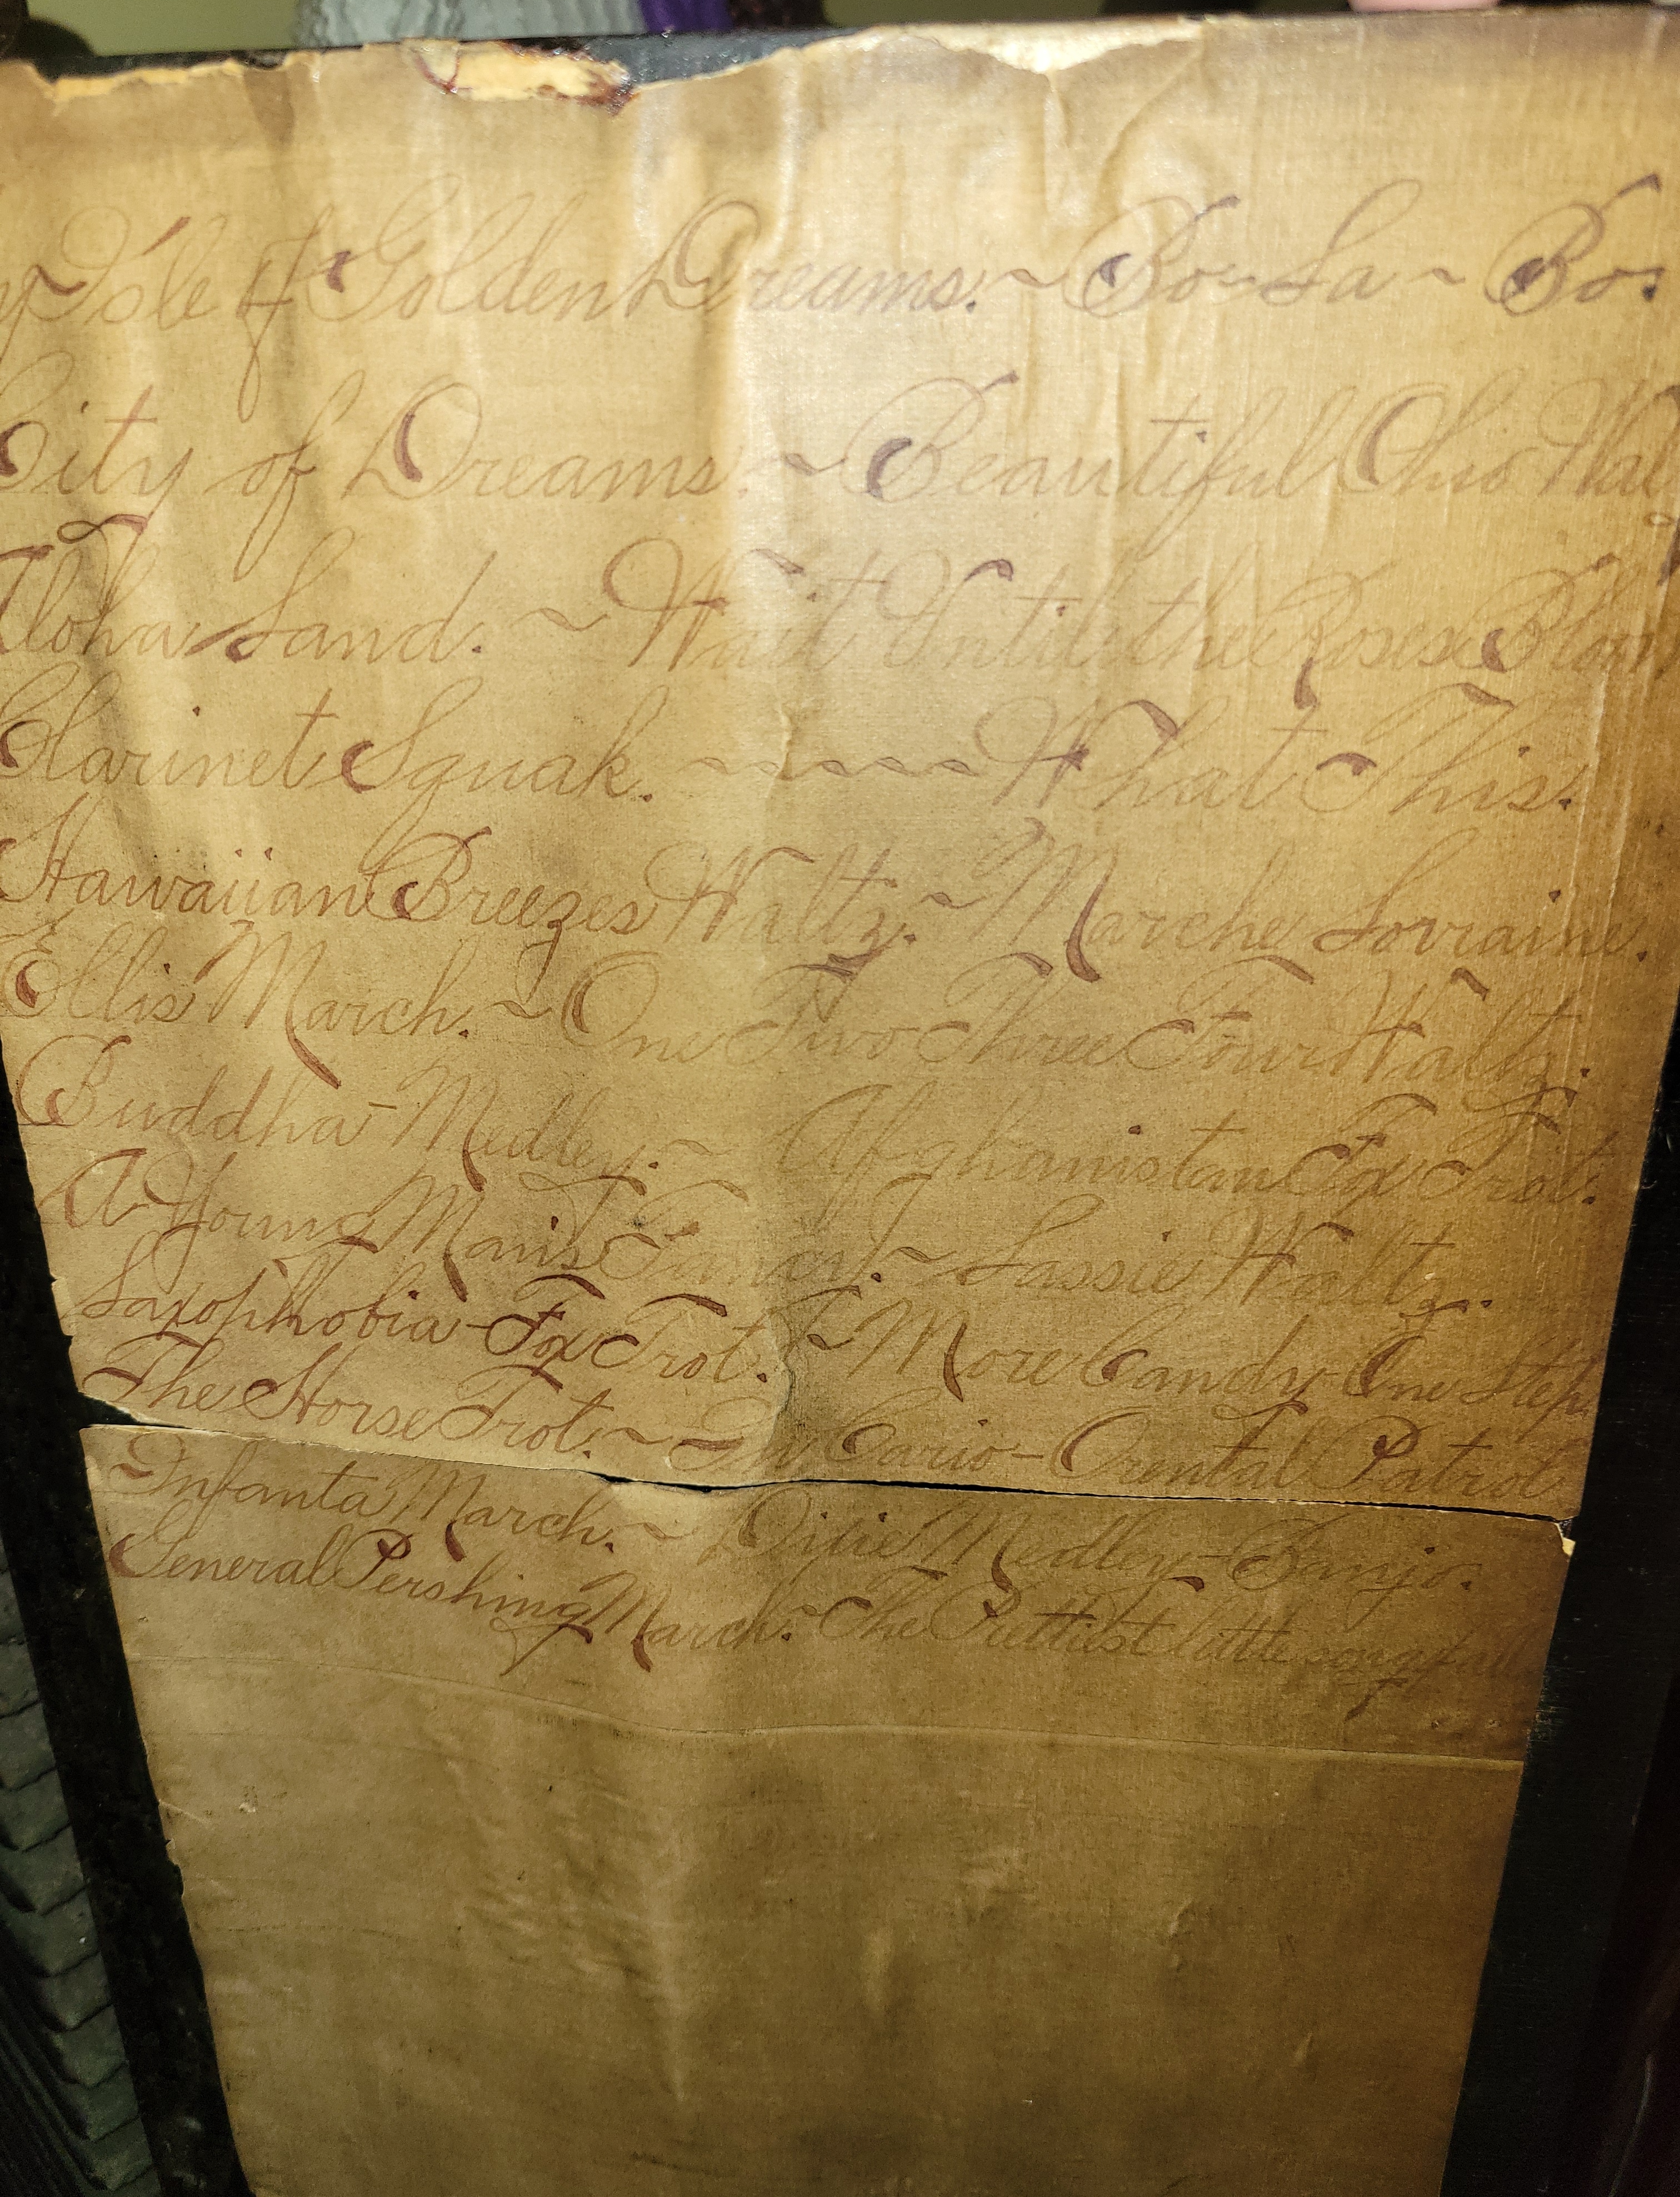 y Isle of Golden Dreams. ~ Bo-La-Bo.
City of Dreams. ~ Beautiful Ohio Wal
Aloha Land. ~ Wait Until the Roses Bloom
Clarinet Squak. ~~~~~ What This.
Hawaiian Breezes Waltz. ~ Marche Lorraine.
Ellis March. ~ One Two Three Four Waltz.
Buddha-Medley. ~ Afghanistan Fox Trot.
A-Young Man's Fancy. ~ Lassie Waltz.
Saxophobia-Fox Trot. ~ More Candy-One Step.
The Horse Trot. ~ In Cario-Orental Patrol
Infanta March. ~ Dixie Medley-Banjo.
General Pershing March. ~ The Prettiest little song